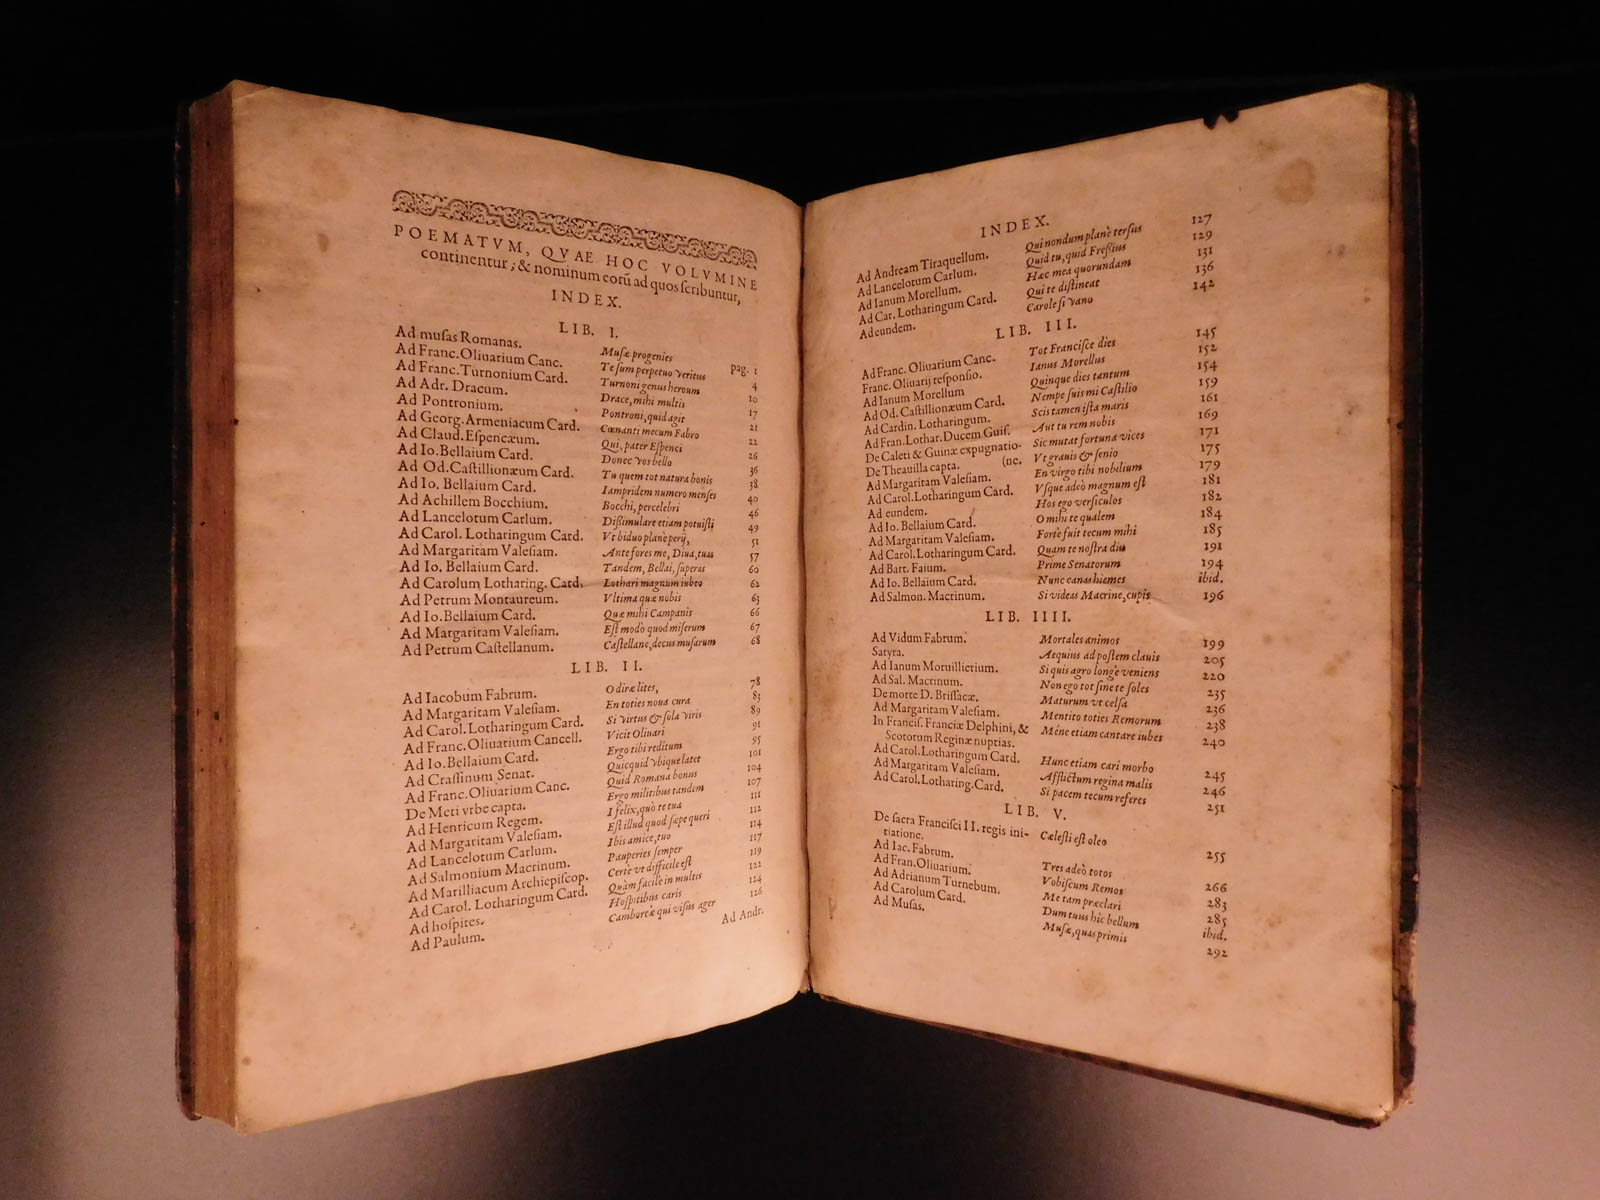 POEMATVM, QVAE HOC VOLVMINE
continentur; & nominum eorũ ad quos scribuntur,
INDEX.
LIB. I.
Ad musas Romanas. Musæ progenies pag. 1
Ad Franc. Oliuarium Canc. Te sum perpetuo veritus 4
Ad Franc. Turnonium Card. Turnoni genus heroum 10
Ad Adr. Dracum. Drace, mihi multis 17
Ad Pontronium. Pontroni, quid agit 21
Ad Georg. Armeniacum Card. Cœnanti mecum Fabro 22
Ad Claud. Espencæum. Qui, pater Espenci 26
Ad Io. Bellaium Card. Donec vos bello 36
Ad Od. Castillionæum Card. Tu quem tot natura bonis 38
Ad Io. Bellaium Card. Iampridem numero menses 40
Ad Achillem Bocchium. Bocchi, percelebri 46
Ad Lancelotum Carlum. Dissimulare etiam potuisti 49
Ad Carol. Lotharingum Card. Vt biduo planè perij, 51
Ad Margaritam Valesiam. Ante fores me, Diua, tuas 57
Ad Io. Bellaium Card. Tandem, Bellai, superas 60
Ad Carolum Lotharing. Card. Lothari magnum iubro 62
Ad Petrum Montaureum. Vltima quæ nobis 63
Ad Io. Bellaium Card. Quæ mihi Campanis 66
Ad Margaritam Valesiam. Est modò quod miserum 67
Ad Petrum Castellanum. Castellane, decus musarum 68
LIB. II.
Ad Iacobum Fabrum. O diræ lites, 78
Ad Margaritam Valesiam. En toties noua cura 83
Ad Carol. Lotharingum Card. Si virtus & sola viris 89
Ad Franc. Oliuarium Cancell. Vicit Oliuari 91
Ad Io. Bellaium Card. Ergo tibi reditum 95
Ad Crassinum Senat. Quicquid vbique latet 101
Ad Franc. Oliuarium Canc. Quid Romana bonus 104
De Meti vrbe capta. Ergo militibus tandem 107
Ad Henricum Regem. I felix, quò te tua 111
Ad Margaritam Valesiam. Est illud quod sæpe queri 112
Ad Lancelotum Carlum. Ibis amice, tuo 114
Ad Salmonium Macrinum. Pauperies semper 117
Ad Marilliacum Archiepiscop. Certe vt difficile est 119
Ad Carol. Lotharingum Card. Quàm facile in multis 122
Ad hospites. Hospitibus caris 124
Ad Paulum. Camboreæ qui visus ager 126
Ad Andr.
INDEX.
Ad Andream Tiraquellum. Qui nondum planè tersus 127
Ad Lancelotum Carlum. Quid tu, quid Fressius 129
Ad Ianum Morellum. Hæc mea quorundam 131
Ad Car. Lotharingum Card. Qui te distineat 136
Ad eundem. Carole si vano 142
LIB. III.
Ad Franc. Oliuarium Canc. Tot Francisce dies 145
Franc. Oliuarij responsio. Ianus Morellus 152
Ad Ianum Morellum Quinque dies tantum 154
Ad Od. Castillionæum Card. Nempe suis mi Castilio 159
Ad Cardin. Lotharingum. Scis tamen ista maris 161
Ad Fran. Lothar. Ducem Guis. Aut tu rem nobis 169
De Caleti & Guinæ expugnatio- Sic mutat fortuna vices 171
De Theauilla capta. (ne. Vt grauis & senio 175
Ad Margaritam Valesiam. En virgo tibi nobelium 179
Ad Carol. Lotharingum Card. Vsque adeò magnum est 181
Ad eundem. Hos ego versiculos 182
Ad Io. Bellaium Card. O mihi te qualem 184
Ad Margaritam Valesiam. Fortè fuit tecum mihi 185
Ad Carol. Lotharingum Card. Quam te nostra diu 191
Ad Bart. Faium. Prime Senatorum 194
Ad Io. Bellaium Card. Nunc canas hiemes ibid.
Ad Salmon. Macrinum. Si videas Macrine, cupis 196
LIB. IIII.
Ad Vidum Fabrum. Mortales animos 199
Satyra. Aequius ad postem clauis 205
Ad Ianum Moruillierium. Si quis agro longè veniens 220
Ad Sal. Macrinum. Non ego tot sine te soles 235
De morte D. Brissacæ. Maturum vt celsa 236
Ad Margaritam Valesiam. Mentito toties Remorum 238
In Francis. Franciæ Delphini, & Méne etiam cantare iubes 240
Scotorum Reginæ nuptias.
Ad Carol. Lotharingum Card. Hunc etiam cari morbo 245
Ad Margaritam Valesiam. Afflictum regina malis 246
Ad Carol. Lotharing. Card. Si pacem tecum referes 251
LIB. V.
De sacra Francisci II. regis ini- Cælesti est oleo 255
tiatione.
Ad Iac. Fabrum. Tres adeò totos 266
Ad Fran. Oliuarium. Vobiscum Remos 283
Ad Adrianum Turnebum. Me tam præclari 285
Ad Carolum Card. Dum tuus hic bellum ibid.
Ad Musas. Musæ, quas primis 292